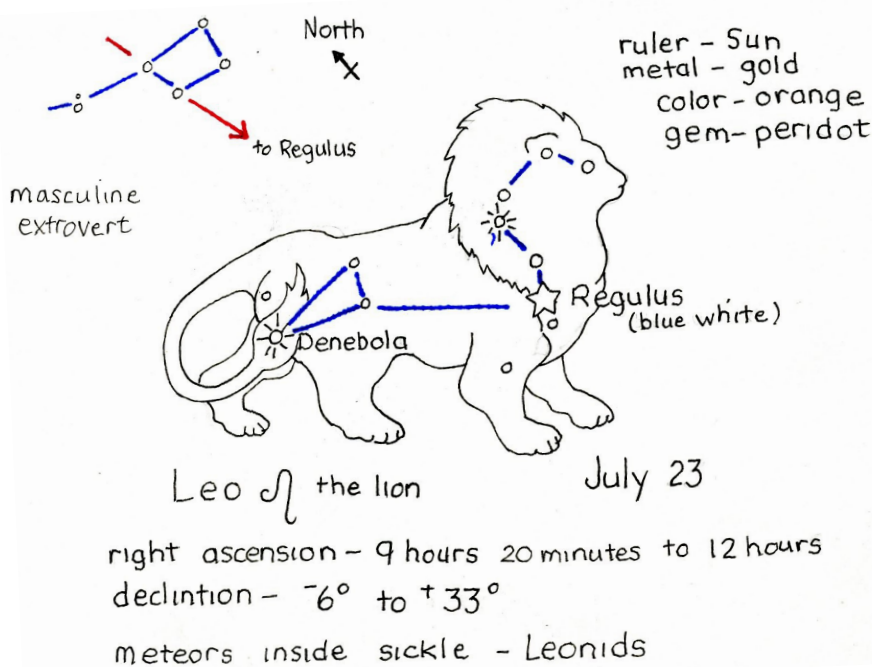 North
ruler – Sun
metal – gold
color – orange
gem – peridot
to Regulus
masculine
extrovert
Regulus
(blue white)
Denebola
Leo ♌ the lion
July 23
right ascension – 9 hours 20 minutes to 12 hours
declintion – -6° to +33°
meteors inside sickle – Leonids